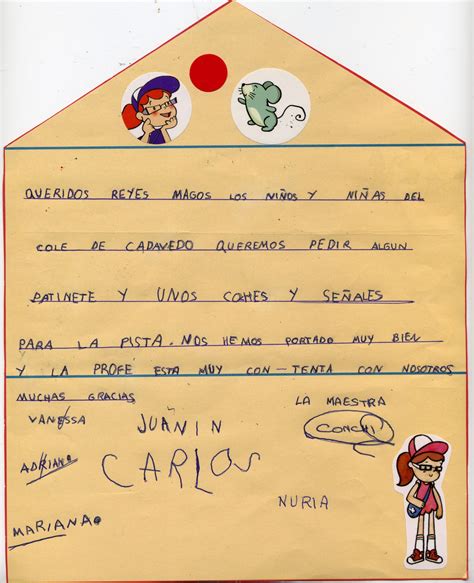 QUERIDOS REYES MAGOS LOS NIÑOS Y NIÑAS DEL
COLE DE CADAVEDO QUEREMOS PEDIR ALGUN
PATINETE Y UNOS COHES Y SEÑALES
PARA LA PISTA. NOS HEMOS PORTADO MUY BIEN
Y LA PROFE ESTA MUY CON-TENTA CON NOSOTROS
MUCHAS GRACIAS
LA MAESTRA
VANESSA JUANIN CONCHI
ADRIANO CARLOS
NURIA
MARIANA